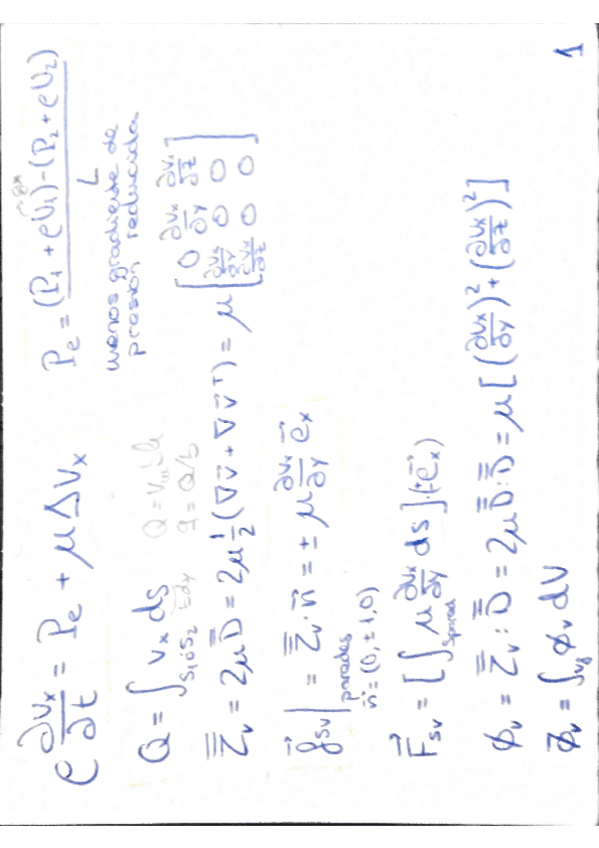 ρ ∂vₓ/∂t = Pₑ + μΔvₓ
Pₑ = ((P₁ + ρU₁) - (P₂ + ρU₂))/L
menos gradiente de
presión reducida
Q = ∫_{S₁ ó S₂} vₓ ds
b dy
q = Q/b
τ̿ᵥ = 2μD̿ = 2μ ½ (∇v⃗ + ∇v⃗ᵀ) = μ [0 ∂vₓ/∂y ∂vₓ/∂z; ∂vₓ/∂y 0 0; ∂vₓ/∂z 0 0]
f⃗ₛᵥ|paredes = τ̿ᵥ·n⃗ = ± μ ∂vₓ/∂y e⃗ₓ
n⃗ = (0, ±1, 0)
F⃗ₛᵥ = [∫_{Spared} μ ∂vₓ/∂y ds] (±e⃗ₓ)
ϕᵥ = τ̿ᵥ : D̿ = 2μ D̿ : D̿ = μ[(∂vₓ/∂y)² + (∂vₓ/∂z)²]
Φᵥ = ∫_{V} ϕᵥ dV
1